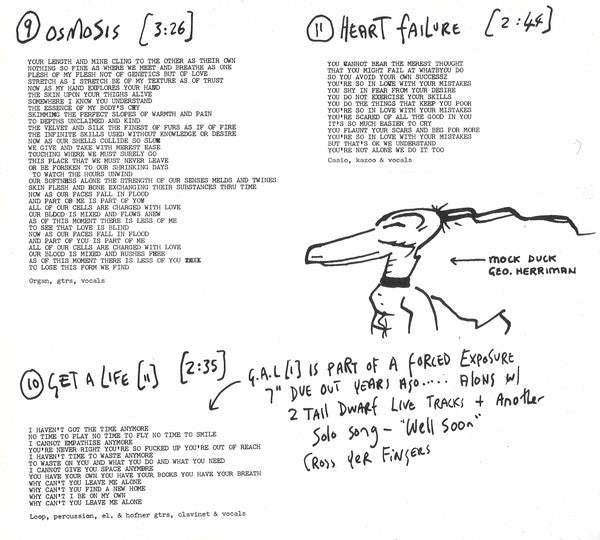 ⑨ OSMOSIS [3:26]
YOUR LENGTH AND MINE CLING TO THE OTHER AS THEIR OWN
NOTHING SO FINE AS WHERE WE MEET AND BREATHE AS ONE
FLESH OF MY FLESH NOT OF GENETICS BUT OF LOVE
STRETCH AS I STRETCH BE OF MY TEXTURE AS OF TRUST
NOW AS MY HAND EXPLORES YOUR HAND
THE SKIN UPON YOUR THIGHS ALIVE
SOMEWHERE I KNOW YOU UNDERSTAND
THE ESSENCE OF MY BODY'S CRY
SKIMMING THE PERFECT SLOPES OF WARMTH AND PAIN
TO DEPTHS UNCLAIMED AND KIND
THE VELVET AND SILK THE FINEST OF FURS AS IF OF FIRE
THE INFINITE SKILLS USED WITHOUT KNOWLEDGE OR DESIRE
NOW AS OUR SHELLS COLLIDE SO SLOW
WE GIVE AND TAKE WITH MEREST EASE
TOUCHING WHERE WE MUST SURELY GO
THIS PLACE THAT WE MUST NEVER LEAVE
OR BE FORSKEN TO OUR SHRINKING DAYS
TO WATCH THE HOURS UNWIND
OUR SOFTNESS ALONE THE STRENGTH OF OUR SENSES MELDS AND TWINES
SKIN FLESH AND BONE EXCHANGING THEIR SUBSTANCES THRU TIME
NOW AS OUR FACES FALL IN FLOOD
AND PART OF ME IS PART OF YOU
ALL OF OUR CELLS ARE CHARGED WITH LOVE
OUR BLOOD IS MIXED AND FLOWS ANEW
AS OF THIS MOMENT THERE IS LESS OF ME
TO SEE THAT LOVE IS BLIND
NOW AS OUR FACES FALL IN FLOOD
AND PART OF YOU IS PART OF ME
ALL OF OUR CELLS ARE CHARGED WITH LOVE
OUR BLOOD IS MIXED AND RUSHES FREE
AS OF THIS MOMENT THERE IS LESS OF YOU
TO LOSE THIS FORM WE FIND
Organ, gtrs, vocals
⑪ HEART FAILURE [2:44]
YOU CANNOT BEAR THE MEREST THOUGHT
THAT YOU MIGHT FAIL AT WHATBYOU DO
SO YOU AVOID YOUR OWN SUCCESSZ
YOU'RE SO IN LOVE WITH YOUR MISTAKES
YOU SHY IN FEAR FROM YOUR DESIRE
YOU DO NOT EXERCISE YOUR SKILLS
YOU DO THE THINGS THAT KEEP YOU POOR
YOU'RE SO IN LOVE WITH YOUR MISTAKES
YOU'RE SCARED OF ALL THE GOOD IN YOU
IT'S SO MUCH EASIER TO CRY
YOU FLAUNT YOUR SCARS AND BEG FOR MORE
YOU'RE SO IN LOVE WITH YOUR MISTAKES
BUT THAT'S OK WE UNDERSTAND
YOU'RE NOT ALONE WE DO IT TOO
Casio, kazoo & vocals
MOCK DUCK
GEO. HERRIMAN
⑩ GET A LIFE [11] [2:35]
G.A.L [1] IS PART OF A FORCED EXPOSURE
7" DUE OUT YEARS AGO..... ALONG W/
2 TALL DWARF LIVE TRACKS + ANOTHER
SOLO SONG - "WELL SOON"
CROSS YER FINGERS
I HAVEN'T GOT THE TIME ANYMORE
NO TIME TO PLAY NO TIME TO FLY NO TIME TO SMILE
I CANNOT EMPATHISE ANYMORE
YOU'RE NEVER RIGHT YOU'RE SO FUCKED UP YOU'RE OUT OF REACH
I HAVEN'T TIME TO WASTE ANYMORE
TO WASTE ON YOU AND WHAT YOU DO AND WHAT YOU NEED
I CANNOT GIVE YOU SPACE ANYMORE
YOU HAVE YOUR OWN YOU HAVE YOUR BOOKS YOU HAVE YOUR BREATH
WHY CAN'T YOU LEAVE ME ALONE
WHY CAN'T YOU FIND A NEW HOME
WHY CAN'T I BE ON MY OWN
WHY CAN'T YOU LEAVE ME ALONE
Loop, percussion, el. & hofner gtrs, clavinet & vocals